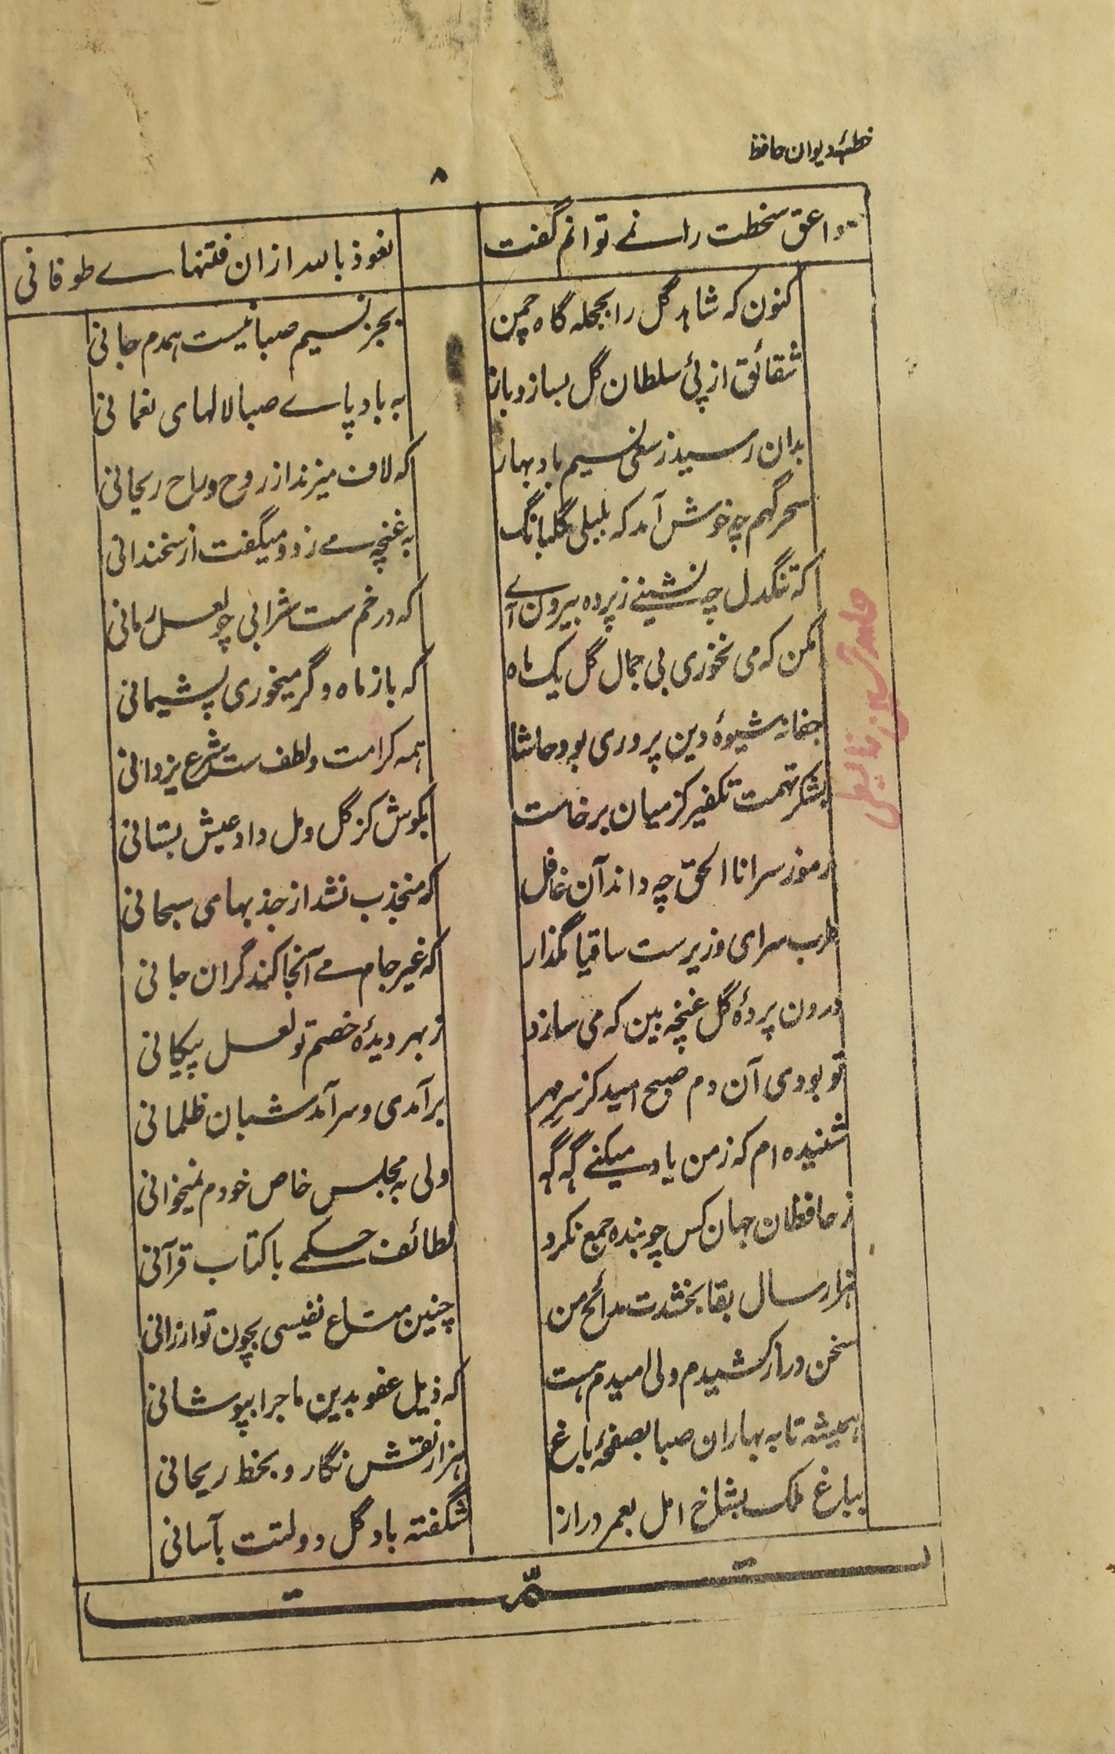 خطبۂ دیوان حافظ
۸
صواعق سخطت را نے توانم گفت
نعوذ باللہ ازان فتنہاے طوفانی
کنون کہ شاہد گل را بحجلہ گاہ چمن
بجز نسیم صبا نیست ہمدم جانی
شقائق از پئ سلطان گل بسازد باز
بہ باد پاے صبا لالہای نعمانی
بدان رسید ز سعی نسیم باد بہار
کہ لاف میزند از روح و راح ریحانی
سحرگہم چہ خوش آمد کہ بلبلی گلبانگ
بہ غنچہ مے زد و میگفت از سخندانی
کہ تنگدل چہ نشینے ز پردہ بیرون آے
کہ در خم ست شرابی چو لعل رمانی
مکن کہ می نخوری بی جمال گل یک ماہ
کہ باز ماہ دگر میخوری پشیمانی
جفا نہ شیوۂ دین پروری بود حاشا
ہمہ کرامت و لطف ست شرع یزدانی
بشکر تہمت تکفیر کز میان برخاست
بکوش کز گل و مل داد عیش بستانی
رموز سر انا الحق چہ داند آن غافل
کہ منجذب نشد از جذبہای سبحانی
طرب سرای وزیر ست ساقیا مگذار
کہ غیر جام مے آنجا کند گران جانی
درون پردۂ گل غنچہ بین کہ می سازد
ز بہر دیدۂ خصم تو لعل پیکانی
تو بودی آن دم صبح امید کز سر مہر
برآمدی و سر آمد شبان ظلمانی
شنیدہ ام کہ ز من یاد میکنے گہ گہ
ولی بہ مجلس خاص خودم نمیخوانی
ز حافظان جہان کس چو بندہ جمع نکرد
لطائف حکمے با کتاب قرآنی
ہزار سال بقا بخشدت مدائح من
چنین متاع نفیسی بچون تو ارزانی
سخن دراز کشیدم ولی امیدم ہست
کہ ذیل عفو بدین ماجرا بپوشانی
ہمیشہ تا بہ بہاران صبا بصفحۂ باغ
ہزار نقش نگارد بخط ریحانی
بباغ ملک بشاخ امل بعمر دراز
شگفتہ باد گل دولتت بآسانی
تمّت